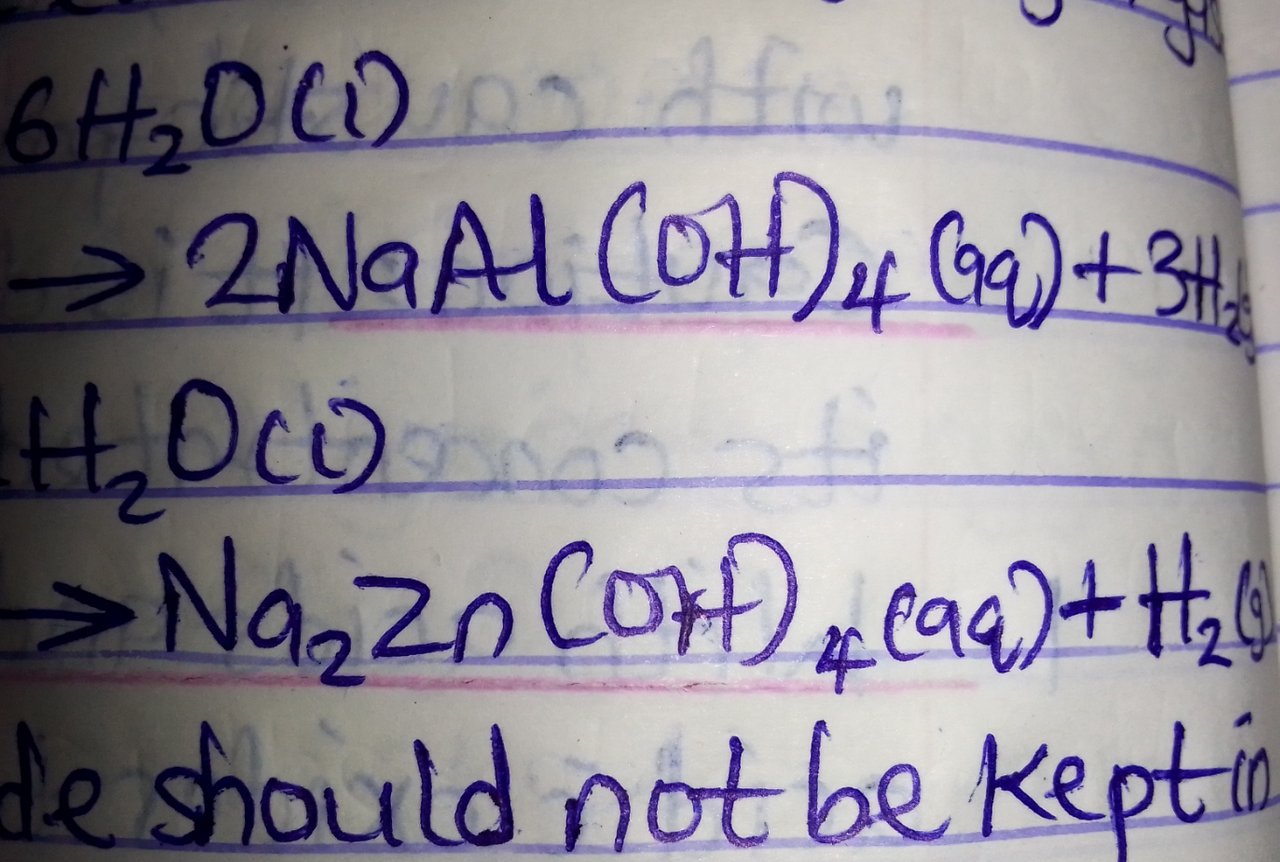 6H₂O(l)
→ 2NaAl(OH)₄(aq) + 3H₂(g
H₂O(l)
→ Na₂Zn(OH)₄(aq) + H₂(g)
de should not be kept in